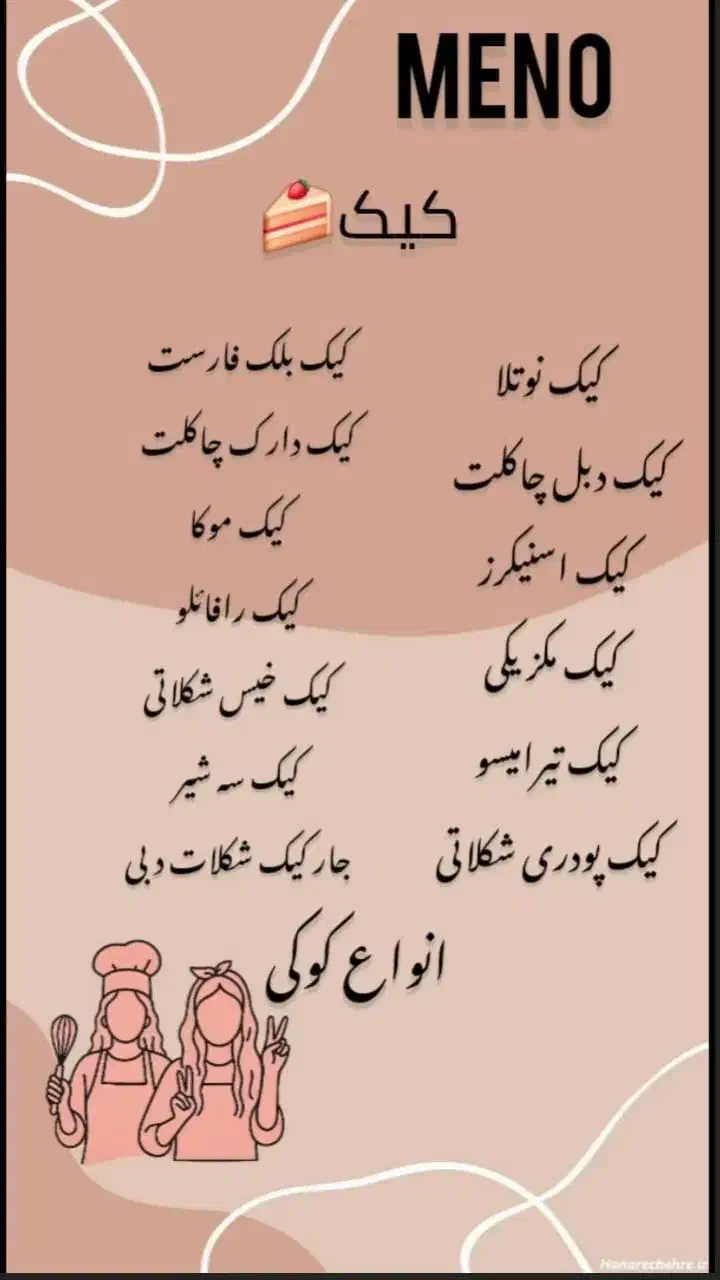 MENO
کیک
کیک نوتلا
کیک دبل چاکلت
کیک اسنیکرز
کیک مکزیکی
کیک تیرامیسو
کیک پودری شکلاتی
کیک بلک فارست
کیک دارک چاکلت
کیک موکا
کیک رافائلو
کیک خیس شکلاتی
کیک سه شیر
جار کیک شکلات دبی
انواع کوکی
Honarechehre.ir